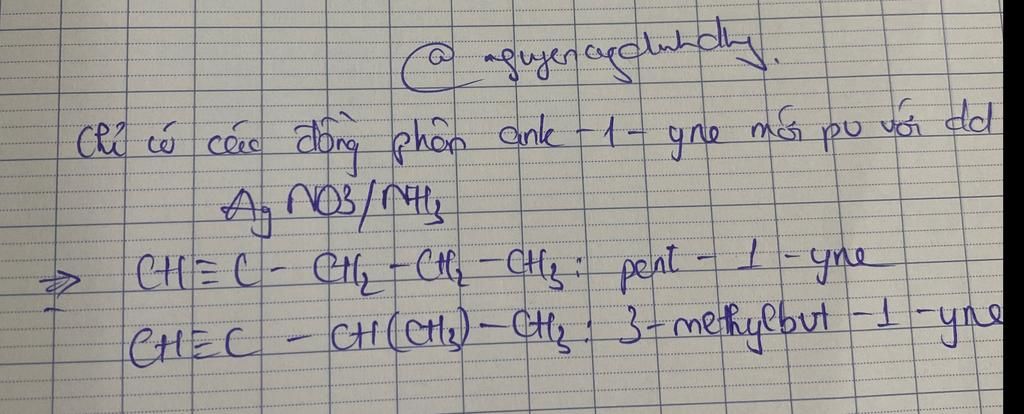 @ nguyenngdinhdhy.
Chỉ có các đồng phân ank-1-yne mới pư với dd
AgNO3/NH3
⇒ CH≡C-CH2-CH2-CH3: pent-1-yne
CH≡C-CH(CH3)-CH3: 3-methylbut-1-yne